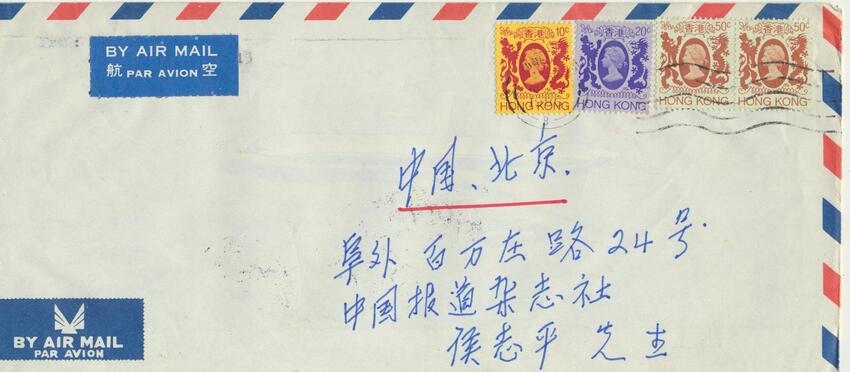 BY AIR MAIL
航 PAR AVION 空
香港 10c
HONG KONG
香港 20c
HONG KONG
香港 50c
HONG KONG
香港 50c
HONG KONG
中国、北京.
阜外 百万庄路 24号.
中国报道杂志社
侯志平 先生
BY AIR MAIL
PAR AVION